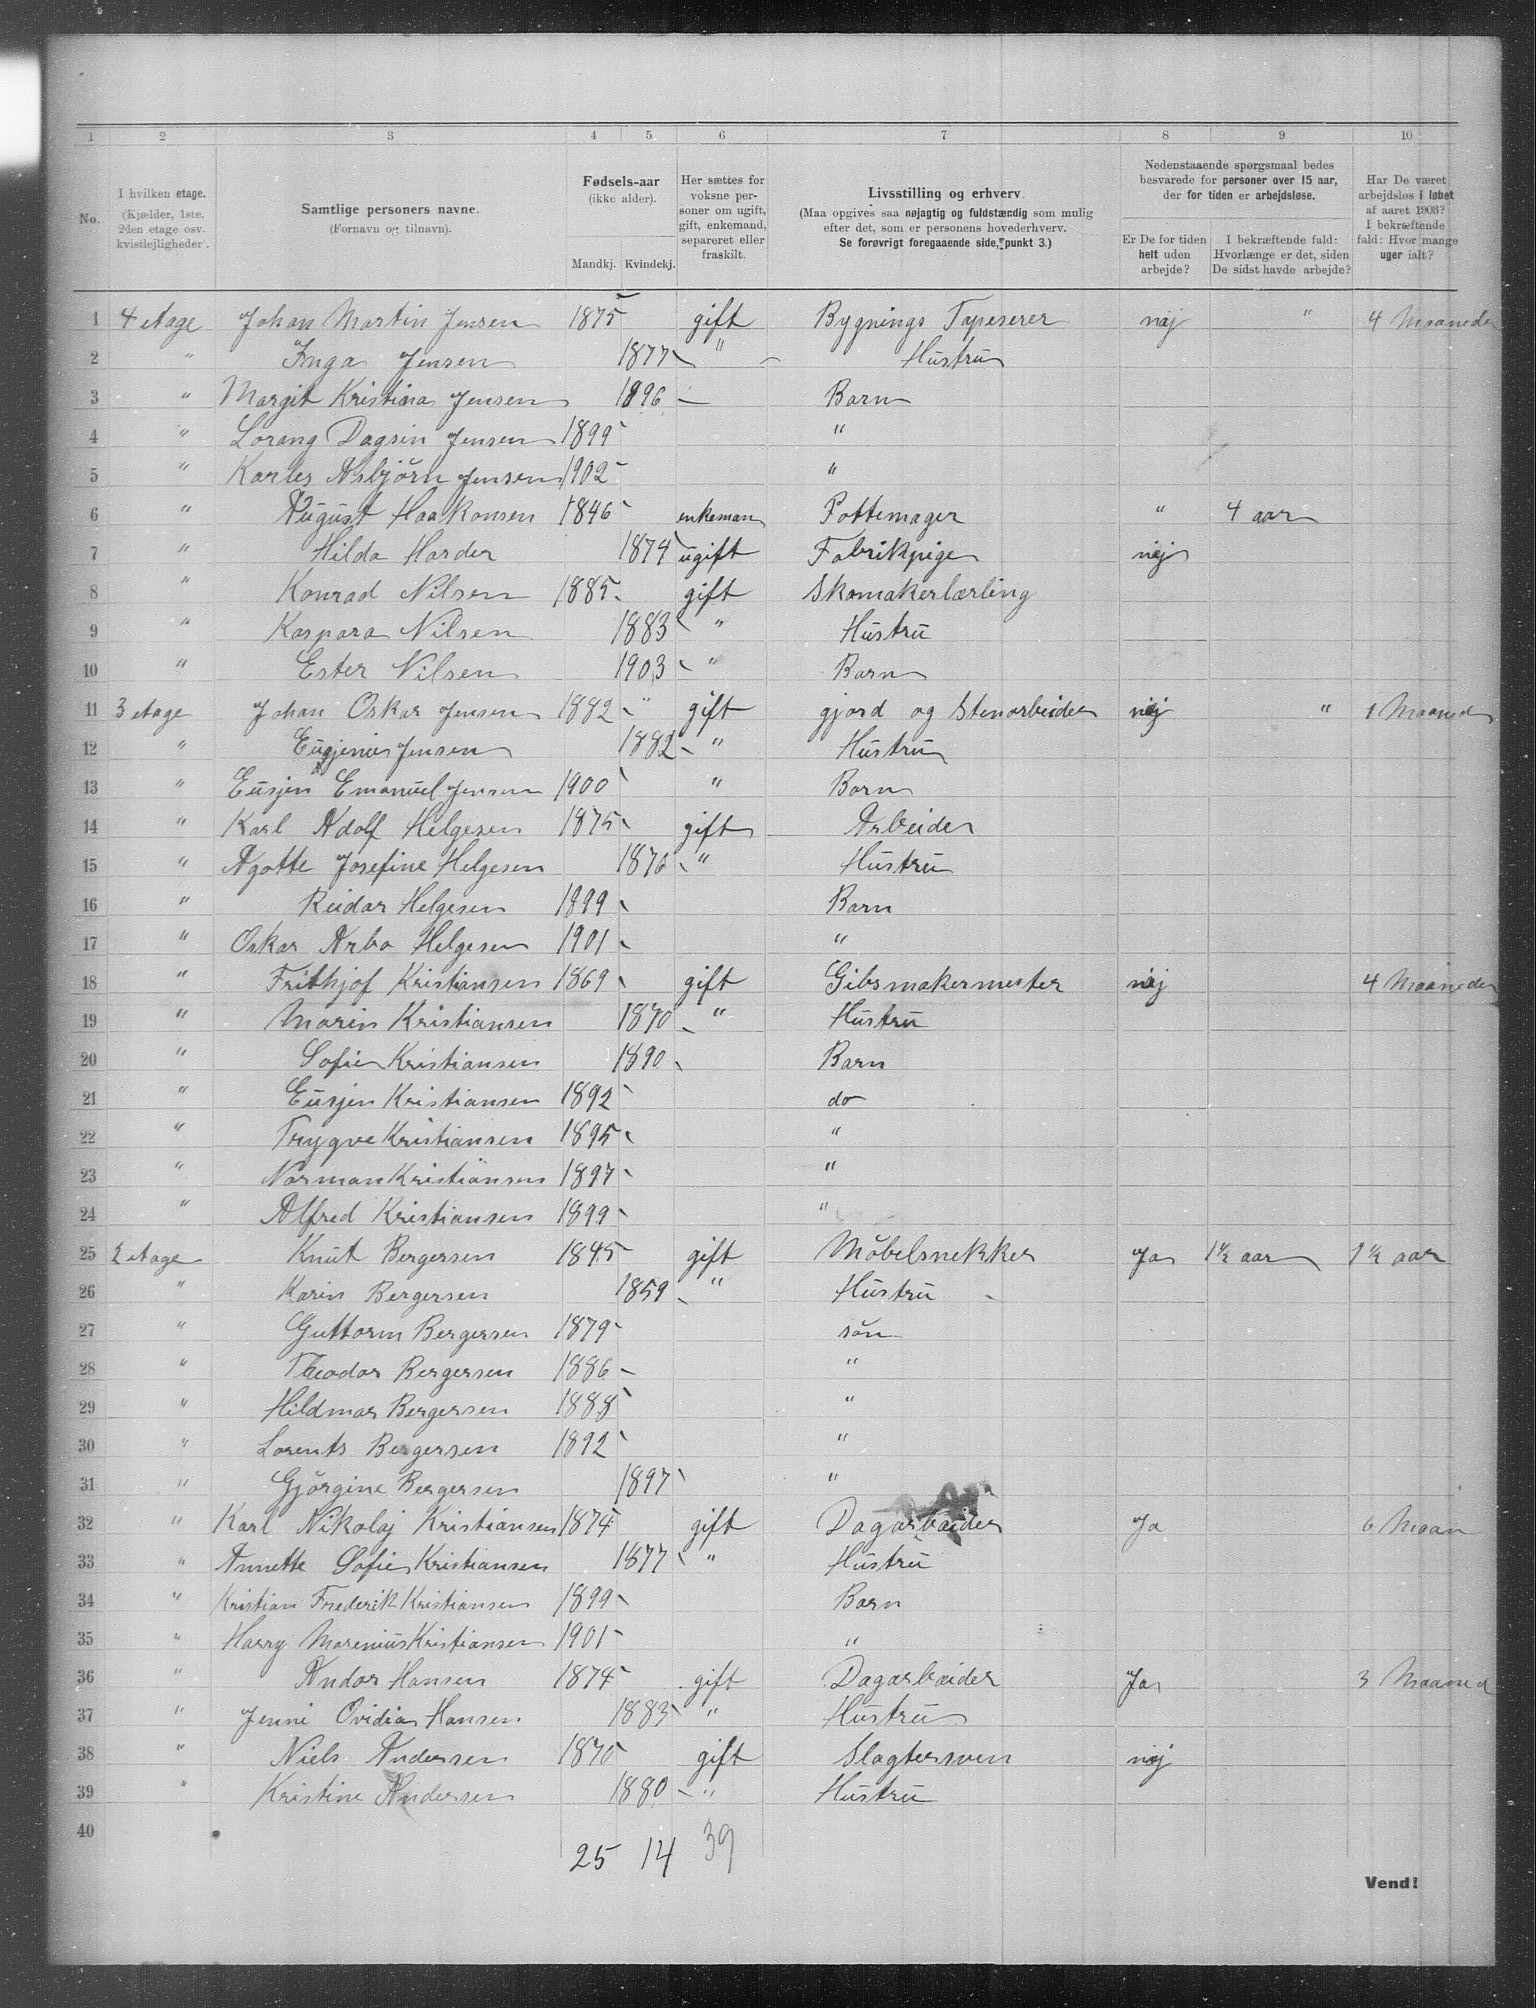 1 2 3 4 5 6 7 8 9 10
No.
I hvilken etage.
(Kjælder, 1ste,
2den etage osv.
kvistlejligheder.
Samtlige personers navne.
(Fornavn og tilnavn).
Fødsels-aar
(ikke alder).
Mandkj. Kvindekj.
Her sættes for
voksne per-
soner om ugift,
gift, enkemand,
separeret eller
fraskilt.
Livsstilling og erhverv.
(Maa opgives saa nøjagtig og fuldstændig som mulig
efter det, som er personens hovederhverv.
Se forøvrigt foregaaende side, punkt 3.)
Nedenstaaende spørgsmaal bedes
besvarede for personer over 15 aar,
der for tiden er arbejdsløse.
Er De for tiden
helt uden
arbejde?
I bekræftende fald:
Hvorlænge er det, siden
De sidst havde arbejde?
Har De været
arbejdsløs i løbet
af aaret 1903?
I bekræftende
fald: Hvor mange
uger ialt?
1 4 etage Johan Martin Jensen 1875 gift Bygnings Tapeserer nej " 4 Maaneder
2 " Inga Jensen 1877 " Hustru
3 " Margit Kristina Jensen 1896 — Barn
4 " Lorang Dagsin Jensen 1899 "
5 " Karles Asbjörn Jensen 1902 "
6 " August Haakonsen 1846 enkeman Pottemager " 4 aar
7 " Hilda Harder 1874 ugift Fabrikpige nej
8 " Konrad Nilsen 1885 gift Skomakerlærling
9 " Kaspara Nilsen 1883 " Hustru
10 " Ester Nilsen 1903 " Barn
11 3 etage Johan Oskar Jensen 1882 " gift gjord og Stenarbeider nej " 1 Maaned
12 " Eugjenie Jensen 1882 " Hustru
13 " Eusjen Emanuel Jensen 1900 " Barn
14 " Karl Adolf Helgesen 1875 gift Arbeider
15 " Agotte Josefine Helgesen 1876 " Hustru
16 " Reidar Helgesen 1899 Barn
17 " Oskar Arbo Helgesen 1901 "
18 " Frithjof Kristiansen 1869 gift Gibsmakermester nej 4 Maaneder
19 " Marin Kristiansen 1870 " Hustru
20 " Sofie Kristiansen 1890 Barn
21 " Eusjen Kristiansen 1892 do
22 " Trygve Kristiansen 1895 "
23 " Norman Kristiansen 1897 "
24 " Alfred Kristiansen 1899 "
25 2 etage Knut Bergersen 1845 gift Möbelsnekker Ja 1 1/2 aar 1 1/2 aar
26 " Karin Bergersen 1859 " Hustru
27 " Guttorm Bergersen 1879 sön
28 " Theodor Bergersen 1886 "
29 " Hildmar Bergersen 1888 "
30 " Lorents Bergersen 1892 "
31 " Gjörgine Bergersen 1897 "
32 " Karl Nikolaj Kristiansen 1874 gift Dagarbeider Ja 6 Maan
33 " Annette Sofie Kristiansen 1877 " Hustru
34 " Kristian Frederik Kristiansen 1899 Barn
35 " Harry Marenius Kristiansen 1901 "
36 " Andor Hansen 1874 gift Dagarbeider Ja 3 Maaned
37 " Jenni Ovidia Hansen 1883 " Hustru
38 " Niels Andersen 1870 gift Slagtersven nej
39 " Kristine Andersen 1880 " Hustru
40
25 14 39
Vend!